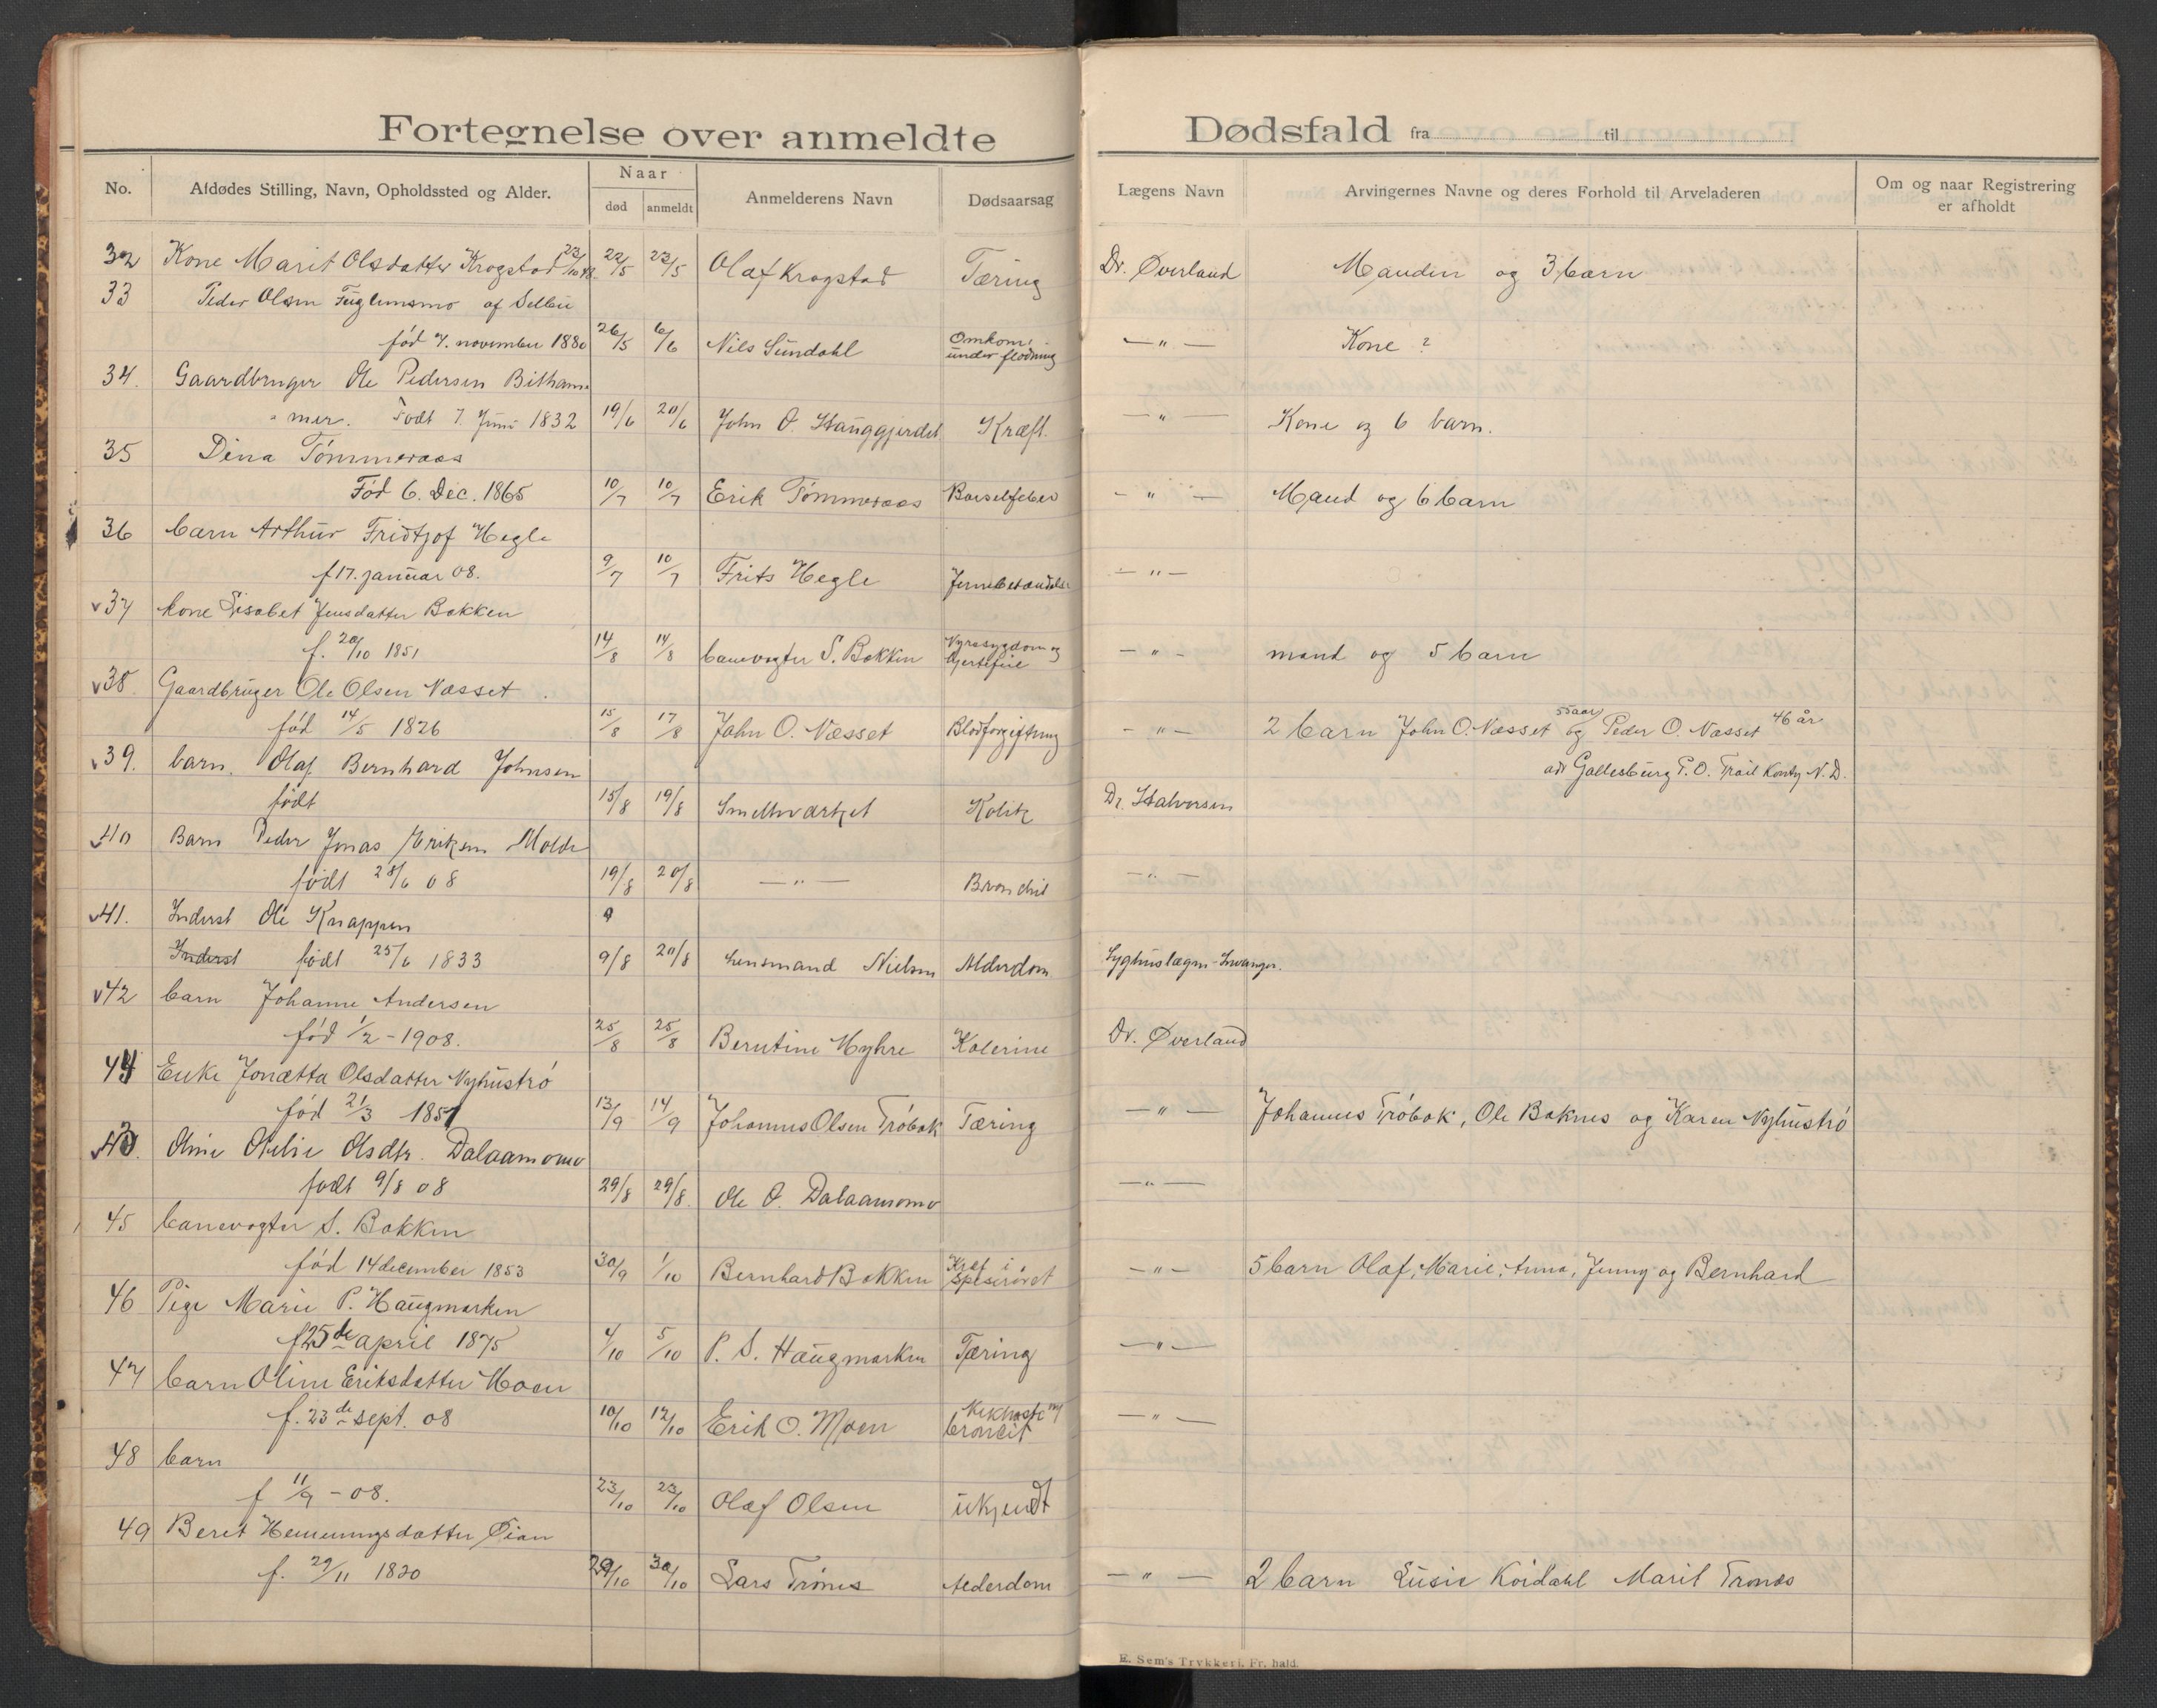 Fortegnelse over anmeldte Dødsfald fra til
No. Afdødes Stilling, Navn, Opholdssted og Alder. Naar død anmeldt Anmelderens Navn Dødsaarsag Lægens Navn Arvingernes Navne og deres Forhold til Arveladeren Om og naar Registrering er afholdt
32 Kone Marit Olsdatter Krogstad 22/5 23/5 Olaf Krogstad Tæring Dr. Øverland Manden og 3 barn
33 Peder Olsen Fuglemsmo af Selbu
fød 7. november 1880 26/5 6/6 Nils Sundahl Omkom: under flødning — " — Kone ?
34. Gaardbruger Ole Pedersen Bitham-
" mer. Født 7. Juni 1832 19/6 20/6 John O. Hauggjerdet Kræft. — " — Kone og 6 barn.
35 Dina Tømmeraas
Fød 6. Dec. 1865 10/7 10/7 Erik Tømmeraas Barselfeber — " — Mand og 6 barn
36 barn Arthur Fridtjof Hegle
f 17. januar 08. 9/7 10/7 Frits Hegle — " —
v 37 kone Lisabet Jensdatter Bakken
f. 20/10 1851 14/8 14/8 banevogter S. Bakken Nyresygdom og hjertefeil — " — mand og 5 barn
v 38. Gaardbruger Ole Olsen Næsset
fød 14/5 1826 15/8 17/8 John O. Næsset Blodforgiftning — " — 2 barn John O. Næsset 55 aar og Peder O. Næsset 46 år
v 39. barn. Olaf Bernhard Johnsen adr Gallesburg P.O. Trail Konty N.D.
født 15/8 19/8 Smelteværket Kolik Dr. Halvorsen
v 40 Barn Peder Jonas Eriksen Molde
født 28/6 08 19/8 20/8 — " — Bronchit — " —
v 41. Inderst Ole Knappen 9
Inderst født 25/6 1833 9/8 20/8 Lensmand Nielsen Alderdom Syghuslægen-Levanger.
v 42 barn Johanne Andersen
fød 1/2 - 1908. 25/8 25/8 Berntine Myhre Kolerine Dr. Øverland
44 Enke Jonetta Olsdatter Nyhustrø
fød 21/3 1851 13/9 14/9 Johannes Olsen Trøbak Tæring — " — Johannes Trøbak, Ole Baknes og Karen Nyhustrø
v 43. Oline Otelie Olsdtr. Dalaamomo
født 9/8 08 29/8 29/8. Ole O. Dalaamomo — " —
45 banevogter S. Bakken
fød 14 december 1853 30/9 1/10 Bernhard Bakken Kræf i spiserøret — " — 5 barn Olaf, Marie, Anna, Jenny og Bernhard
46 Pige Marie P. Haugmarken
f 25de april 1875 4/10 5/10 P. S. Haugmarken Tæring — " —
47 barn Oline Eriksdatter Moen
f. 23de sept. 08 10/10 12/10 Erik O. Moen bronkit — " —
48 barn
f 11/9 - 08. 23/10 23/10 Olaf Olsen ukjendt
49 Beret Hemmingsdatter Øian
f. 29/11 1820 29/10 30/10 Lars Trønes Alderdom — " — 2 barn Lusie Kordahl Marit Trønes
E. Sem's Trykkeri, Fr. hald.